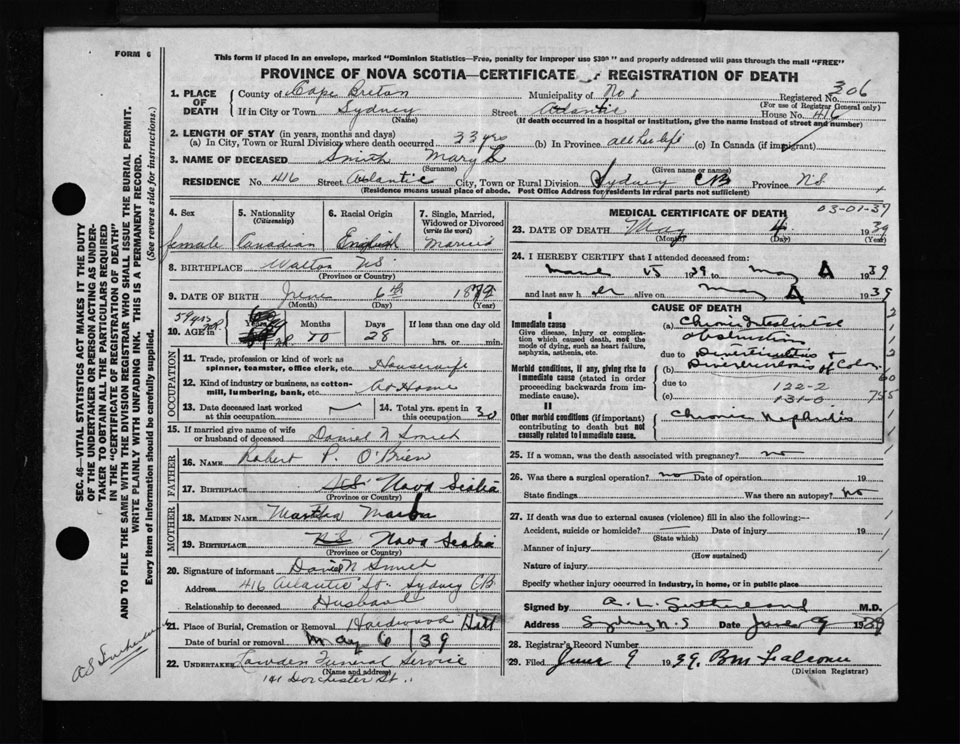 FORM 6
This form if placed in an envelope, marked "Dominion Statistics—Free, penalty for improper use $300" and properly addressed will pass through the mail "FREE"
PROVINCE OF NOVA SCOTIA—CERTIFICATE OF REGISTRATION OF DEATH
1. PLACE OF DEATH
County of Cape Breton Municipality of No 8 Registered No. 306
(For use of Registrar General only)
If in City or Town Sydney Street Atlantic House No. 416
(Name) (If death occurred in a hospital or institution, give the name instead of street and number)
2. LENGTH OF STAY (in years, months and days)
(a) In City, Town or Rural Division where death occurred 33 yrs (b) In Province all her life (c) In Canada (if immigrant)
3. NAME OF DECEASED Smith Mary L
(Surname) (Given name or names)
RESIDENCE No. 416 Street Atlantic City, Town or Rural Division Sydney CB Province NS
(Residence means usual place of abode. Post Office Address for residents in rural parts not sufficient)
4. Sex
female
5. Nationality
(Citizenship)
Canadian
6. Racial Origin
English
7. Single, Married, Widowed or Divorced
(write the word)
Married
8. BIRTHPLACE Walton NS
(Province or Country)
9. DATE OF BIRTH June 6th 1879
(Month) (Day) (Year)
59 yrs
10. AGE in Years Months 10 Days 28 If less than one day old
hrs. or min.
OCCUPATION
11. Trade, profession or kind of work as spinner, teamster, office clerk, etc. Housewife
12. Kind of industry or business, as cotton-mill, lumbering, bank, etc. at Home
13. Date deceased last worked at this occupation
14. Total yrs. spent in this occupation 30
15. If married give name of wife or husband of deceased Daniel N Smith
FATHER
16. NAME Robert P. O'Brien
17. BIRTHPLACE NS Nova Scotia
(Province or Country)
MOTHER
18. MAIDEN NAME Martha
19. BIRTHPLACE NS Nova Scotia
(Province or Country)
20. Signature of informant Daniel N Smith
Address 416 Atlantic St. Sydney CB
Relationship to deceased Husband
21. Place of Burial, Cremation or Removal Hardwood Hill
Date of burial or removal May 6 / 39
22. UNDERTAKER Lawden Funeral Service
(Name and address)
141 Dorchester St.
MEDICAL CERTIFICATE OF DEATH
03-01-37
23. DATE OF DEATH May 4 1939
(Month) (Day) (Year)
24. I HEREBY CERTIFY that I attended deceased from:
March 15 1939 to May 4 1939
and last saw her alive on May 4 1939
CAUSE OF DEATH
I
Immediate cause
Give disease, injury or complication which caused death, not the mode of dying, such as heart failure, asphyxia, asthenia, etc.
(a) Chronic Intestinal obstruction
due to
Morbid conditions, if any, giving rise to immediate cause (stated in order proceeding backwards from immediate cause).
(b) Diverticulitis & Diverticulosis of Colon
due to 122-2
(c) 131-0
II
Other morbid conditions (if important) contributing to death but not causally related to immediate cause.
Chronic Nephritis
25. If a woman, was the death associated with pregnancy? no
26. Was there a surgical operation? no Date of operation 19
State findings Was there an autopsy? No
27. If death was due to external causes (violence) fill in also the following:—
Accident, suicide or homicide? Date of injury 19
(State which)
Manner of injury
(How sustained)
Nature of injury
Specify whether injury occurred in industry, in home, or in public place
Signed by A. L. Sutherland M.D.
Address Sydney N.S Date June 9 1939
28. Registrar's Record Number
29. Filed June 9 1939. BM Falconer
(Division Registrar)
SEC. 46—VITAL STATISTICS ACT MAKES IT THE DUTY OF THE UNDERTAKER OR PERSON ACTING AS UNDERTAKER TO OBTAIN ALL THE PARTICULARS REQUIRED IN THE "CERTIFICATE OF REGISTRATION OF DEATH" AND TO FILE THE SAME WITH THE DIVISION REGISTRAR WHO SHALL ISSUE THE BURIAL PERMIT.
WRITE PLAINLY WITH UNFADING INK. THIS IS A PERMANENT RECORD.
Every item of information should be carefully supplied. (See reverse side for instructions.)